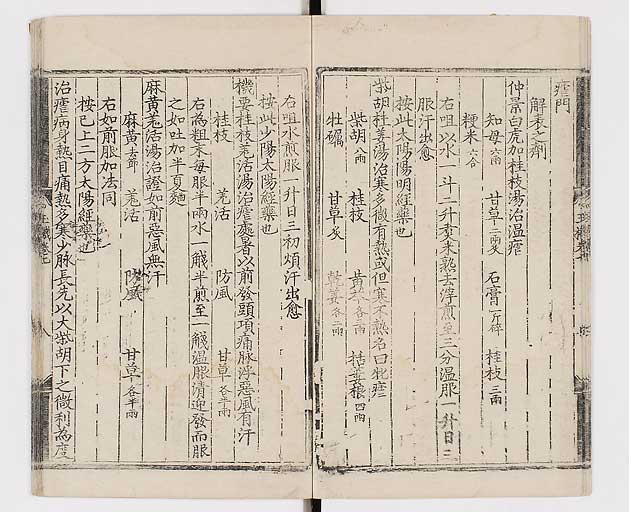 瘧門
解表之劑
仲景白虎加桂枝湯治温瘧
知母六兩 甘草二兩炙 石膏一斤碎 桂枝三兩
粳米六合
右㕮以水一斗二升煑米熟去滓煎至三分温服一升日三
服汗出愈
按此太陽陽明經藥也
柴胡桂姜湯治寒多微有熱或但寒不熱名曰牝瘧
柴胡八兩 桂枝 黃芩各三兩 括蔞根四兩
牡礪 甘草炙 乾姜各二兩
右㕮水煎服一升日三初煩汗出愈
按此少陽太陽經藥也
機要桂枝羌活湯治瘧處暑以前發頭項痛脉浮惡風有汗
桂枝 羌活 防風 甘草各半兩
右為粗末每服半兩水一觥半煎至一觥温服清迎發而服
之如吐加半夏麯
麻黃羌活湯治證如前惡風無汗
麻黃去節 羌活 防風 甘草各半兩
右如前服加法同
按已上二方太陽經藥也
治瘧病身熱目痛熱多寒少脉長先以大柴胡下之微利為度